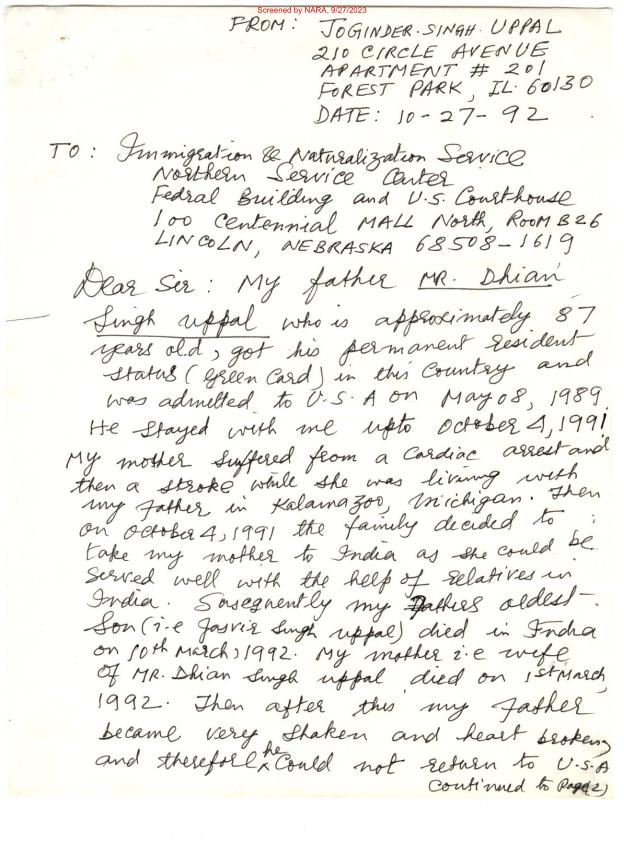 Screened by NARA, 9/27/2023
FROM: JOGINDER. SINGH. UPPAL
210 CIRCLE AVENUE
APARTMENT # 201
FOREST PARK, IL. 60130
DATE: 10-27-92
TO: Immigration & Naturalization Service
Northern Service Center
Fedral Building and U.S. Courthouse
100 Centennial MALL North, ROOM B26
LINCOLN, NEBRASKA 68508-1619
Dear Sir: My father MR. Dhian
Singh uppal who is approximately 87
years old, got his permanent resident
status (Green Card) in this Country and
was admitted to U.S.A on May 08, 1989.
He stayed with me upto October 4, 1991
My mother suffered from a Cardiac arrest and
then a stroke while she was living with
my father in Kalamazoo, Michigan. Then
on October 4, 1991 the family decided to
take my mother to India as she could be
served well with the help of relatives in
India. Susequently my Fathers oldest
Son (i.e Jasvir Singh uppal) died in India
on 10th March, 1992. My mother i.e wife
of MR. Dhian Singh uppal died on 1st March,
1992. Then after this my father
became very shaken and heart broken,
and therefore he Could not return to U.S.A
Continued to Page (2)